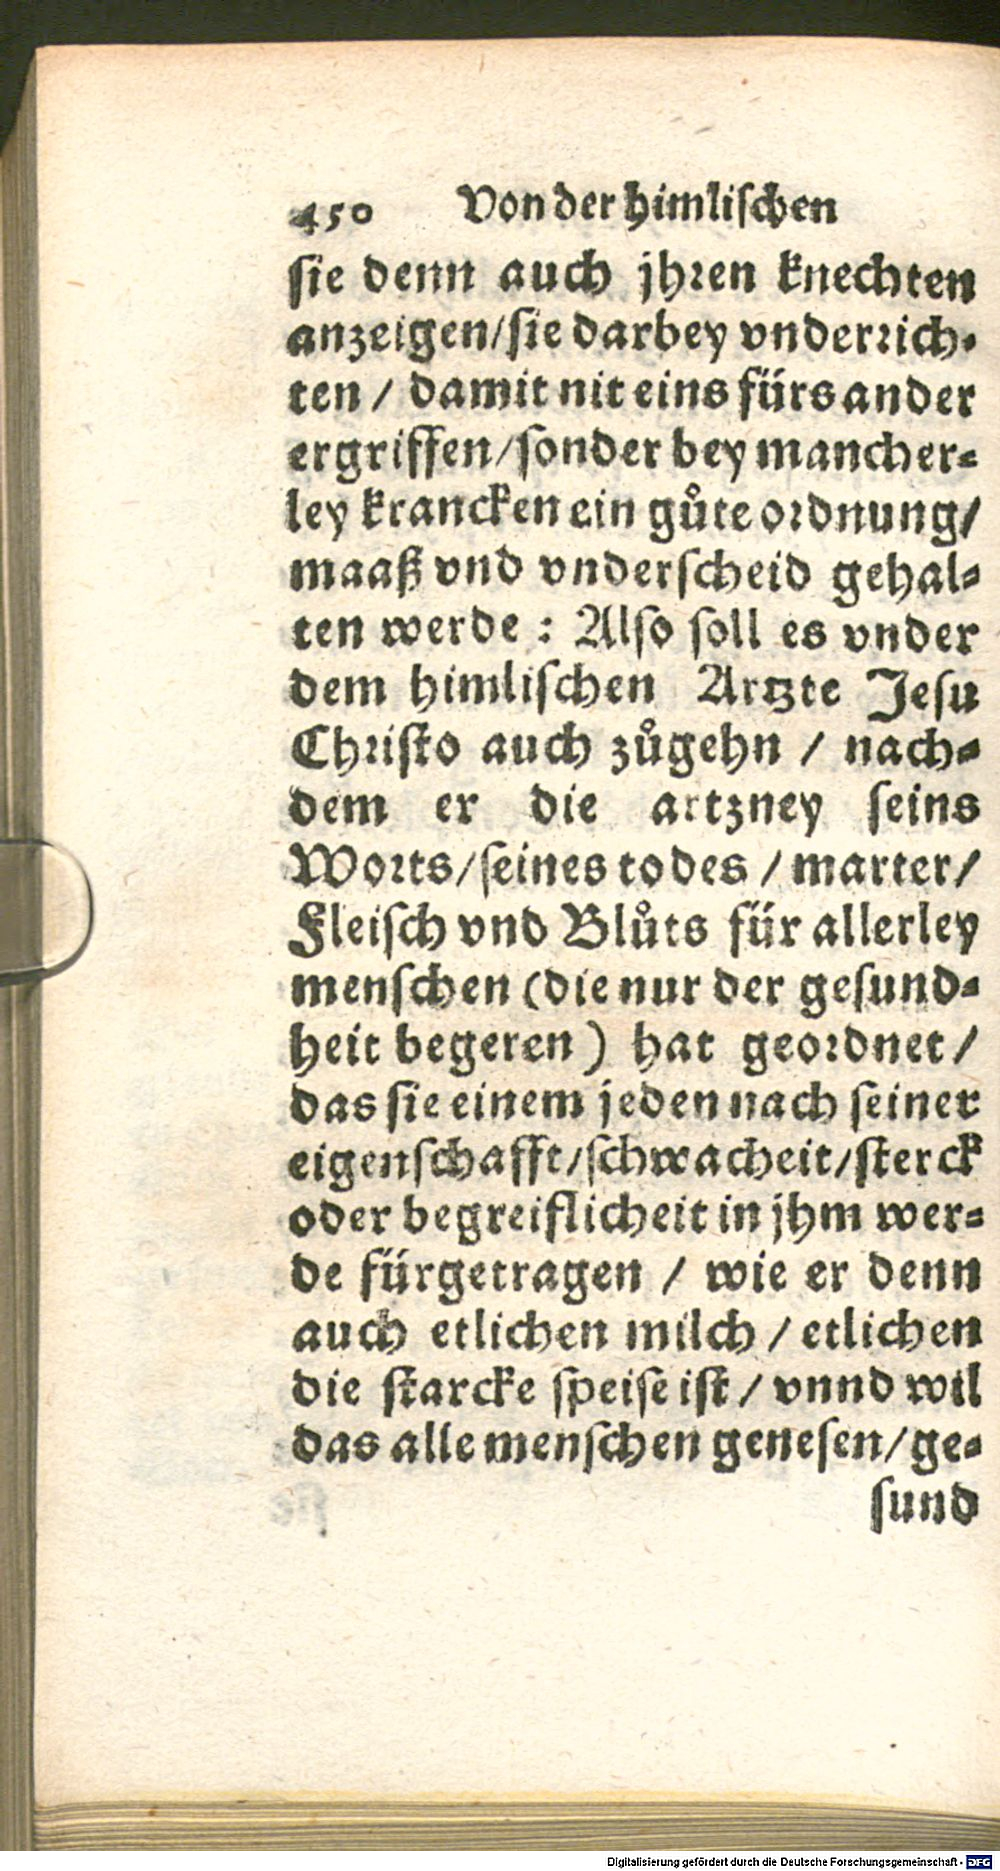 450 Von der himliſchen
ſie denn auch jhren knechten
anzeigen/ſie darbey vnderrich-
ten / damit nit eins fürs ander
ergriffen/ſonder bey mancher-
ley krancken ein gůte ordnung/
maaß vnd vnderſcheid gehal-
ten werde : Alſo ſoll es vnder
dem himliſchen Artzte Jeſu
Chriſto auch zůgehn / nach-
dem er die artzney ſeins
Worts/ſeines todes / marter/
Fleiſch vnd Blůts für allerley
menſchen (die nur der geſund-
heit begeren) hat geordnet /
das ſie einem jeden nach ſeiner
eigenſchafft/ſchwacheit/ſterck
oder begreiflicheit in jhm wer-
de fürgetragen / wie er denn
auch etlichen milch / etlichen
die ſtarcke ſpeiſe iſt / vnnd wil
das alle menſchen geneſen/ge-
ſund
Digitalisierung gefördert durch die Deutsche Forschungsgemeinschaft - DFG